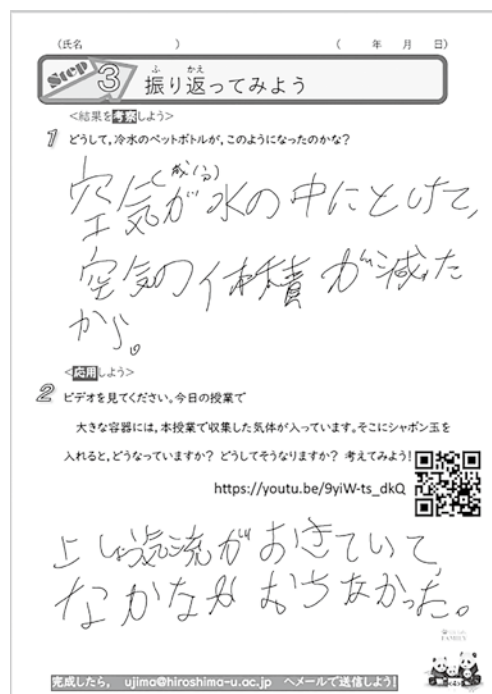 (氏名 )
( 年 月 日)
Step 3 振り返ってみよう
ふ かえ
<結果を考察しよう>
1 どうして,冷水のペットボトルが,このようになったのかな?
(成分)
空気が水の中にとけて,
空気の体積が減った
から。
<応用しよう>
2 ビデオを見てください。今日の授業で
大きな容器には,本授業で収集した気体が入っています。そこにシャボン玉を
入れると,どうなっていますか? どうしてそうなりますか? 考えてみよう!
https://youtu.be/9yiW-ts_dkQ
上しょう気流がおきていて,
なかなかおちなかった。
完成したら, ujima@hiroshima-u.ac.jp へメールで送信しよう!